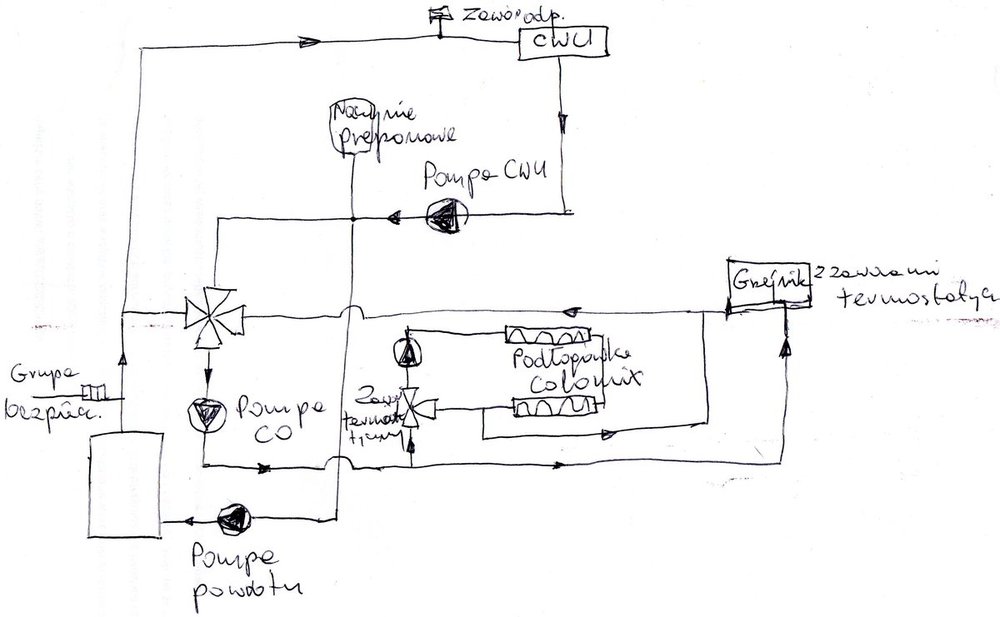 Zawór odp.
CWU
Naczynie
przeponowe
Pompa CWU
Grzejnik
z zaworami
termostatycz
Grupa
bezpiecz.
Pompa
CO
Zawór
termosta
tyczny
Podłogówka
colomix
Pompa
powrotu